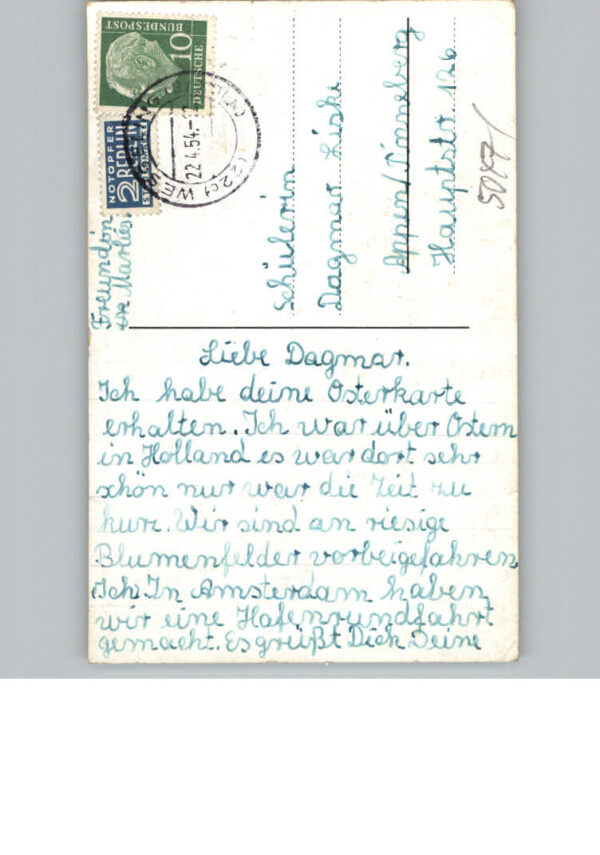 Liebe Dagmar.
Ich habe deine Osterkarte
erhalten. Ich war über Ostern
in Holland es war dort sehr
schön nur war die Zeit zu
kurz. Wir sind an riesige
Blumenfelder vorbeigefahren
(Ich) In Amsterdam haben
wir eine Hafenrundfahrt
gemacht. Es grüßt Dich Deine
Freundin
Marlies
Schülerin
Dagmar Liske
Appen/Pinneberg
Hauptstr 126
DEUTSCHE
BUNDESPOST
10
NOTOPFER
2 BERLIN
STEUERMARKE
22.4.54.
(22c) WES